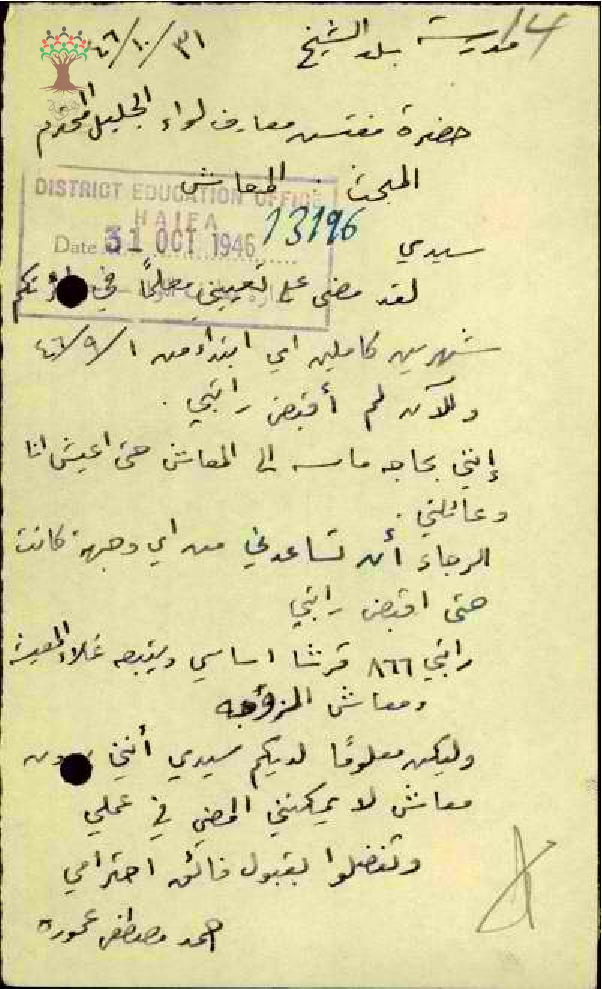 14
مدرسة بلد الشيخ ٣١/١٠/٤٦
حضرة مفتش معارف لواء الجليل المحترم
المبحث : المعاش
DISTRICT EDUCATION OFFICE
HAIFA
13196
Date 31 OCT 1946
سيدي
لقد مضى على تعييني معلمًا في
شهرين كاملين اي ابتداء من ١/٩/٤٦
وللآن لم أقبض راتبي .
إنني بحاجه ماسه الى المعاش حتى اعيش انا
وعائلتي .
الرجاء أن تساعدني من اي وجهة كانت
حتى اقبض راتبي
راتبي ٨٦٦ قرشا اساسي ويتبعه غلاء المعيشة
ومعاش الزوجه
وليكن معلومًا لديكم سيدي أنني بدون
معاش لا يمكنني المضي في عملي
وتفضلوا بقبول فائق احترامي
احمد مصطفى عمورة